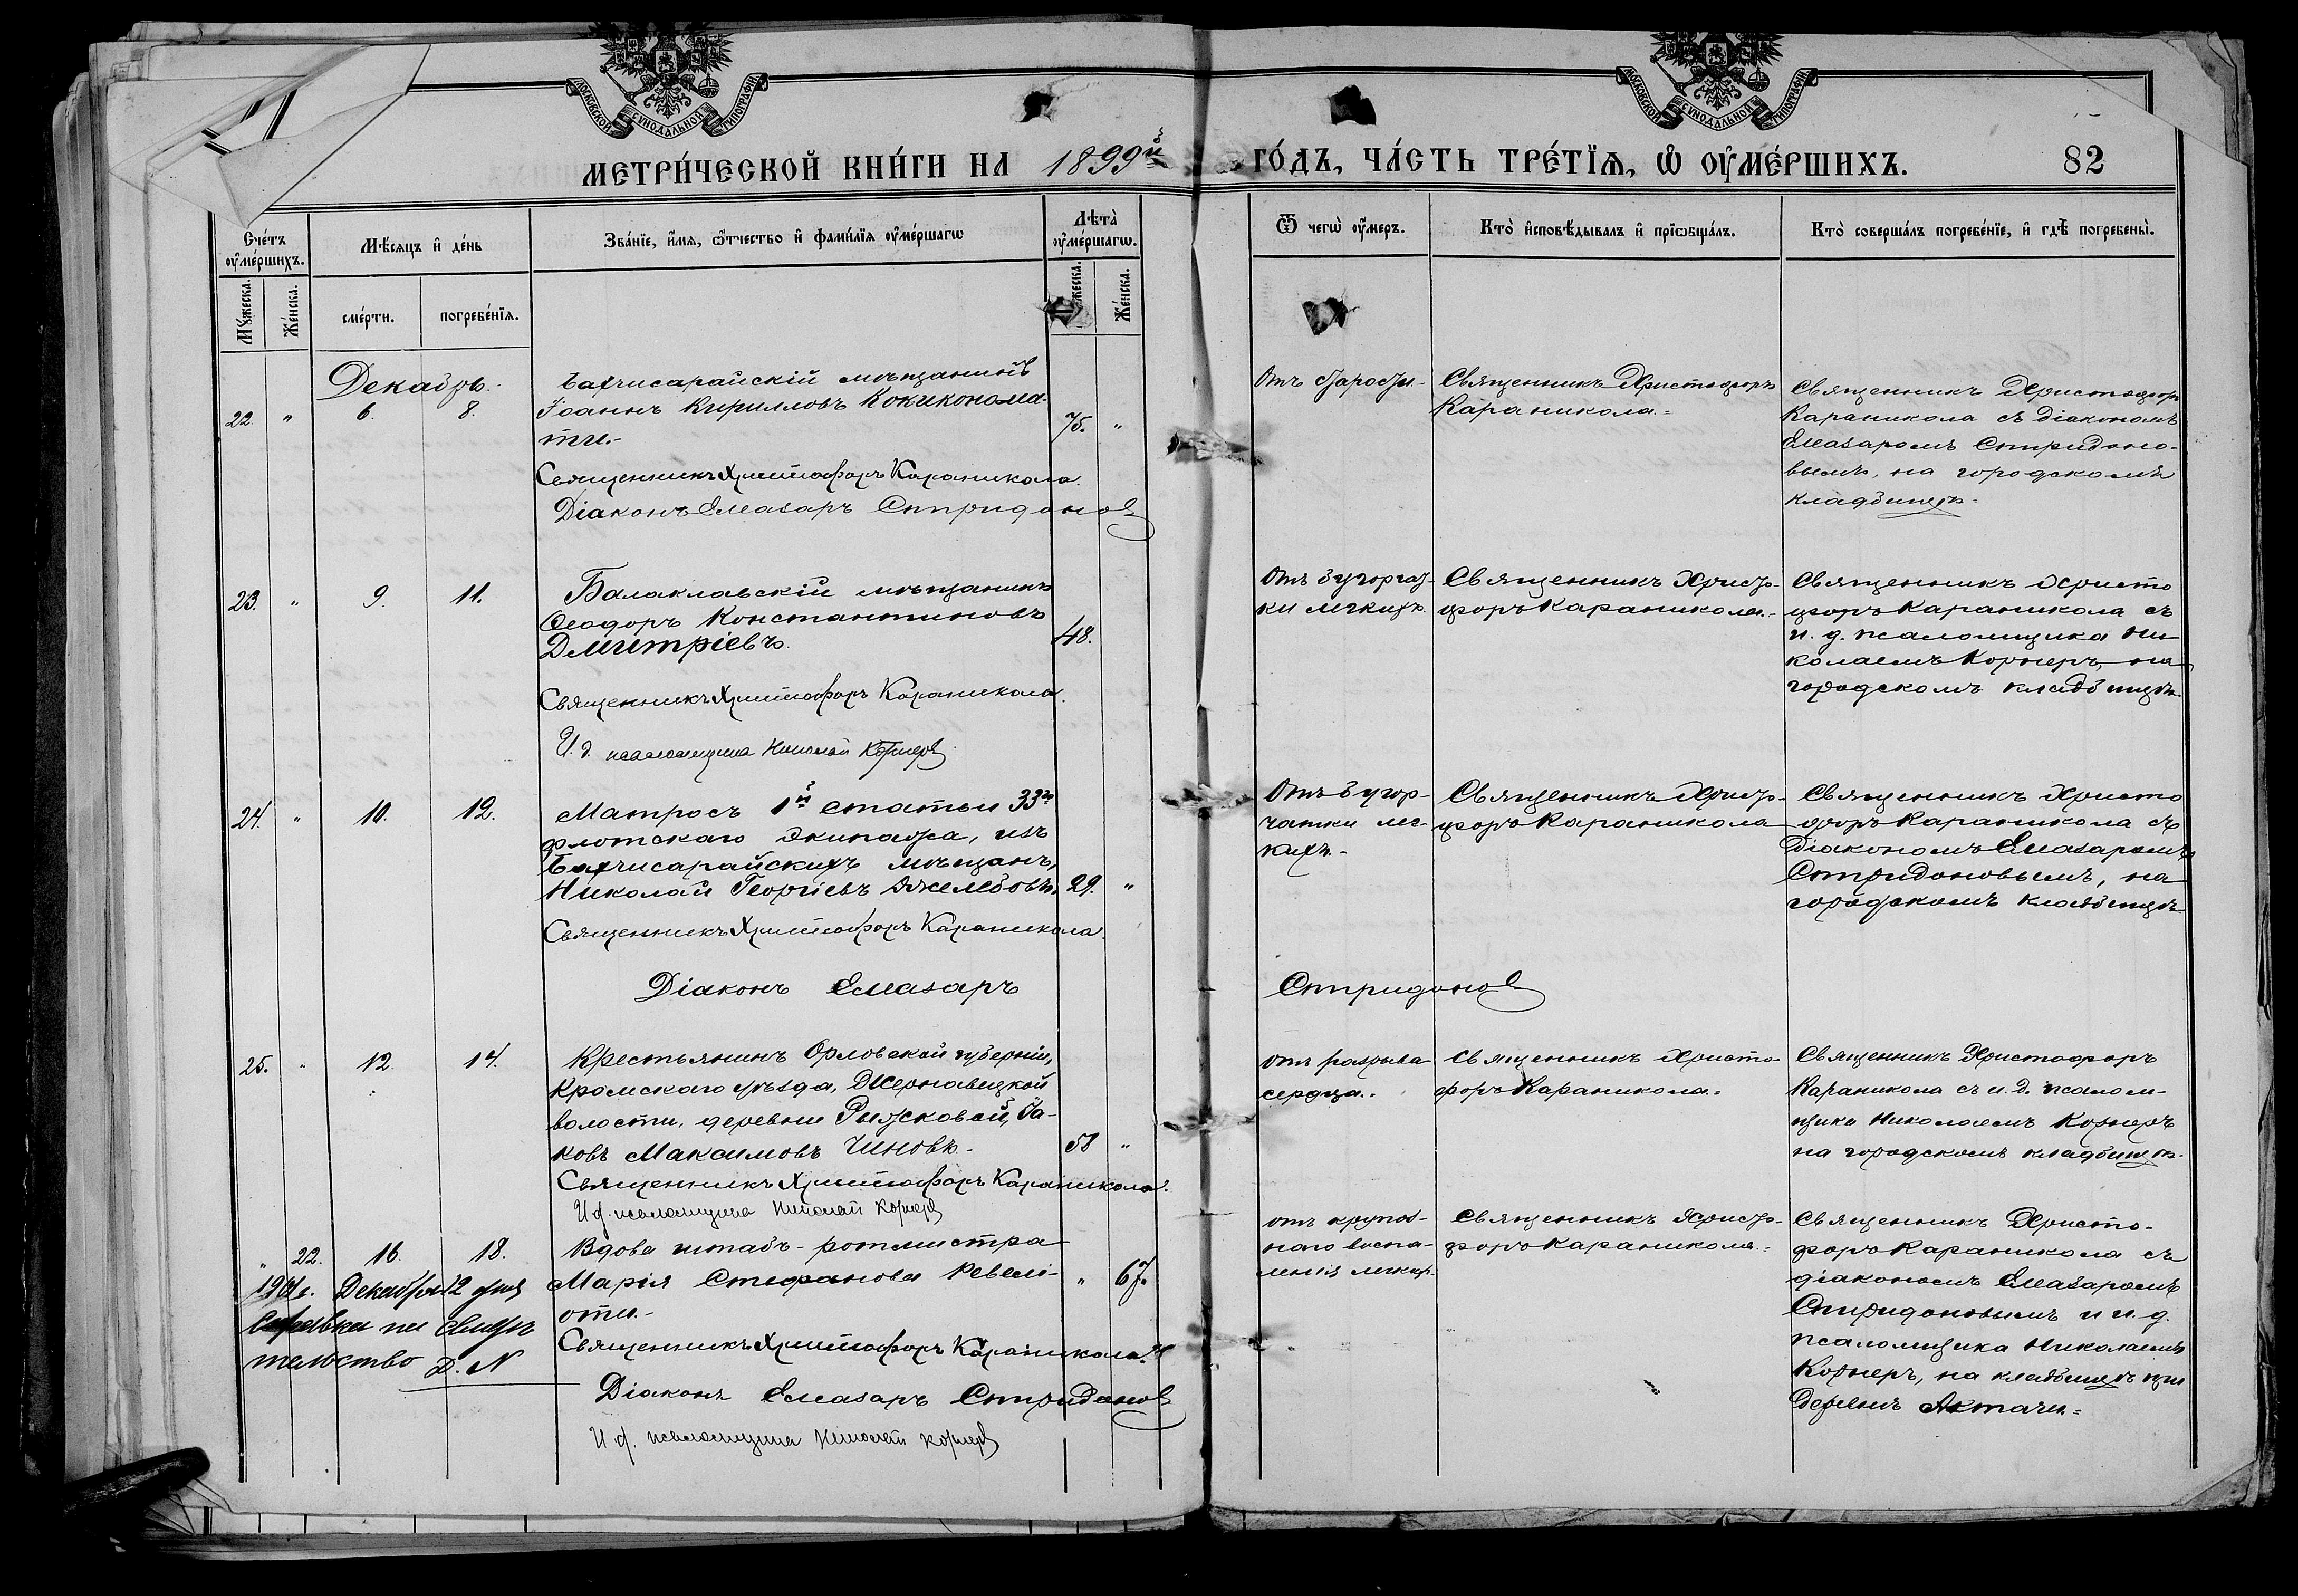 МОСКОВСКОЙ СѴНОДАЛЬНОЙ ТИПОГРАФІИ
МОСКОВСКОЙ СѴНОДАЛЬНОЙ ТИПОГРАФІИ
МЕТРИ́ЧЕСКОЙ КНИ́ГИ НА 1899й ГО́ДЪ, ЧА́СТЬ ТРЕ́ТЇѦ, Ѡ҆ ОУ҆МЕ́РШИХЪ. 82
Сче́тъ оу҆ме́ршихъ.
Мѣ́сяцъ и҆ де́нь
Зва́нїе, и҆́мѧ, ѻ҆́тчество и҆ фами́лїѧ оу҆ме́ршагѡ
Лѣта̀ оу҆ме́ршагѡ.
Ѿ чегѡ̀ оу҆́меръ.
Кто̀ и҆сповѣ́дывалъ и҆ прїѡбща́лъ.
Кто̀ соверша́лъ погребе́нїе, и҆ гдѣ̀ погребены̀.
Му́жеска.
Же́нска.
сме́рти.
погребе́нїѧ.
Же́нска.
Декабрь.
22. " 6. 8.
Бахчисарайскій мѣщанинъ
Іоаннъ Кирилловъ Кокикономати.-
75. "
Священникъ Христофоръ Караникола.
Діаконъ Елеазаръ Спиридоновъ
Отъ старости.
Священникъ Христофоръ
Караникола.
Священникъ Христофоръ
Караникола съ діакономъ
Елеазаромъ Спиридоно-
вымъ, на городскомъ
кладбищѣ.
23. " 9. 11.
Балаклавскій мѣщанинъ
Ѳеодоръ Константиновъ
Дмитріевъ.
48.
Священникъ Христофоръ Караникола.
И. д. псаломщика Николай Корнеръ
Отъ бугорчат-
ки легкихъ.
Священникъ Христо-
форъ Караникола.
Священникъ Христо
форъ Караникола съ
и. д. псаломщика Ни
колаемъ Корнеръ, на
городскомъ кладбищѣ.
24. " 10. 12.
Матросъ 1й статьи 33го
флотскаго экипажа, изъ
Бахчисарайскихъ мѣщанъ,
Николай Георгіевъ Джелебовъ.
29. "
Священникъ Христофоръ Караникола.
Діаконъ Елеазаръ Спиридоновъ
Отъ бугор-
чатки лег-
кихъ.-
Священникъ Христо-
форъ Караникола
Священникъ Христо
форъ Караникола съ
Діакономъ Елеазаромъ
Спиридоновымъ, на
городскомъ кладбищѣ
25. " 12. 14.
Крестьянинъ Орловской губерніи,
Кромскаго уѣзда,
волости, деревни Рыжковой, Іа-
ковъ Максимовъ Чиновъ.-
58 "
Священникъ Христофоръ Караникола.
И д. псаломщика Николай Корнеръ
отъ разрыва
сердца.
Священникъ Христо-
форъ Караникола.
Священникъ Христофоръ
Караникола съ и. д. псалом-
щика Николаемъ Корнеръ
на городскомъ кладбищѣ.
" 22. 16. 18.
Вдова штабъ-ротмистра
Марія Стефанова Ревели-
оти.-
" 67.
Священникъ Христофоръ Караникола.
Діаконъ Елеазаръ Спиридоновъ
И д. псаломщика Николай Корнеръ
отъ крупоз-
наго воспа-
ленія легких.
Священникъ Христо-
форъ Караникола.
Священникъ Христо-
форъ Караникола съ
діакономъ Елеазаромъ
Спиридоновымъ и и. д.
псаломщика Николаемъ
Корнеръ, на кладбищѣ при
деревнѣ Актачи.
Декабря 12 дня
тельство